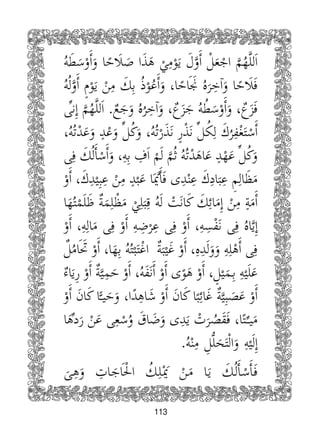 اَللّٰهُمَّ اجْعَلْ اَوَّلَ يَوْمِيْ هَذَا صَلَاحًا وَأَوْسَطَهُ
فَلَاحًا وَآخِرَهُ نَجَاحًا، وَأَعُوْذُ بِكَ مِنْ يَوْمٍ أَوَّلُهُ
فَزَعٌ، وَأَوْسَطُهُ جَزَعٌ، وَآخِرُهُ وَجَعٌ. اَللّٰهُمَّ إِنِّى
أَسْتَغْفِرُكَ لِكُلِّ نَذْرٍ نَذَرْتُهُ، وَكُلِّ وَعْدٍ وَعَدْتُهُ،
وَكُلِّ عَهْدٍ عَاهَدْتُهُ ثُمَّ لَمْ اَفِ بِهِ، وَأَسْأَلُكَ فِى
مَظَالِمِ عِبَادِكَ عِنْدِى فَأَيَّمَا عَبْدٍ مِنْ عَبِيْدِكَ، أَوْ
أَمَةٍ مِنْ إِمَائِكَ كَانَتْ لَهُ قِبَلِيْ مَظْلِمَةٌ ظَلَمْتُهَا
إِيَّاهُ فِى نَفْسِهِ، أَوْ فِى عِرْضِهِ أَوْ فِى مَالِهِ، أَوْ
فِى أَهْلِهِ وَوَلَدِهِ، أَوْ غَيْبَةٌ اغْتَبْتُهُ بِهَا، أَوْ تَحَامُلٌ
عَلَيْهِ بِمَيْلٍ، أَوْ هَوًى أَوْ أَنَفَةٍ، أَوْ حَمِيَّةٍ أَوْ رِيَاءٍ
أَوْ عَصَبِيَّةٍ غَائِبًا كَانَ أَوْ شَاهِدًا، وَحَيًّا كَانَ أَوْ
مَيِّتًا، فَقَصُرَتْ يَدِى وَضَاقَ وُسْعِى عَنْ رَدِّهَا
إِلَيْهِ وَالْتَحَلُّلِ مِنْهُ.
فَأَسْأَلُكَ يَا مَنْ يَمْلِكُ الْحَاجَاتِ وَهِىَ
113